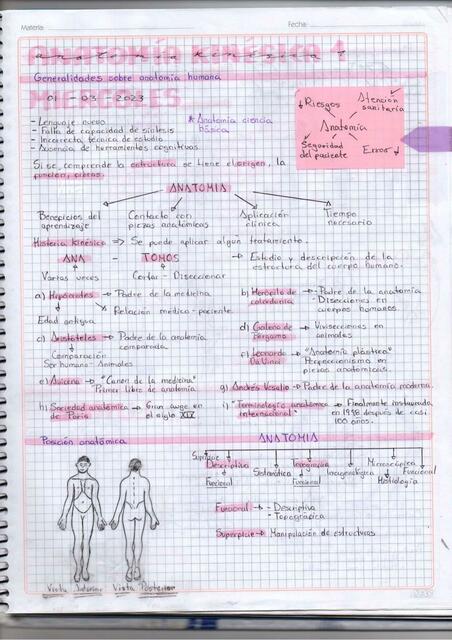 Materia
Fecha
ANATOMÍA KINÉSICA 1
anatomía kinésica 1
Generalidades sobre anatomía humana
MIERCOLES
01 - 03 - 2023
- Lenguaje nuevo
- Falta de capacidad de síntesis
- Incorrecta técnica de estudio
- Ausencia de herramientas cognitivas.
* Anatomía ciencia
básica
Riesgos
Atención
sanitaria
Anatomía
Seguridad
del paciente
Error
Si se comprende la estructura se tiene el origen, la
función,
ANATOMIA
Beneficios del
aprendizaje
Contacto con
piezas anatómicas
Aplicación
clínica
Tiempo
necesario
Historia kinésica => Se puede aplicar algún tratamiento.
ANA - TOMOS
Varias veces
Cortar - Diseccionar
→ Estudio y descripción de la
estructura del cuerpo humano.
a) Hipócrates → Padre de la medicina
Relación médico - paciente
Edad antigua
b) Herófilo de
→ - Padre de la anatomía
- Disecciones en
cuerpos humanos.
c) Aristóteles → Padre de la anatomía
comparada
Comparación
Ser humano - Animales
d) Galeno de
Pérgamo
→ Vivisecciones en
animales
Leonardo
Da Vinci
→ "Anatomía plástica"
Perfeccionismo en
piezas anatómicas.
e) Avicena → "Canon de la medicina"
Primer libro de anatomía
g) Andrés Vesalio → Padre de la anatomía moderna.
h) Sociedad anatómica
de París
→ Gran auge en
el siglo XIX
i) "Terminología anatómica
internacional"
→ Finalmente instaurada
en 1998 después de casi
100 años.
Posición anatómica
ANATOMIA
Superficie
Descriptiva
Funcional
Sistemática
Topográfica
Funcional
Imagenológica
Microscópica
Histología
Funcional
Funcional → - Descriptiva
- Topográfica
Superficie → Manipulación de estructuras
Vista Anterior
Vista Posterior